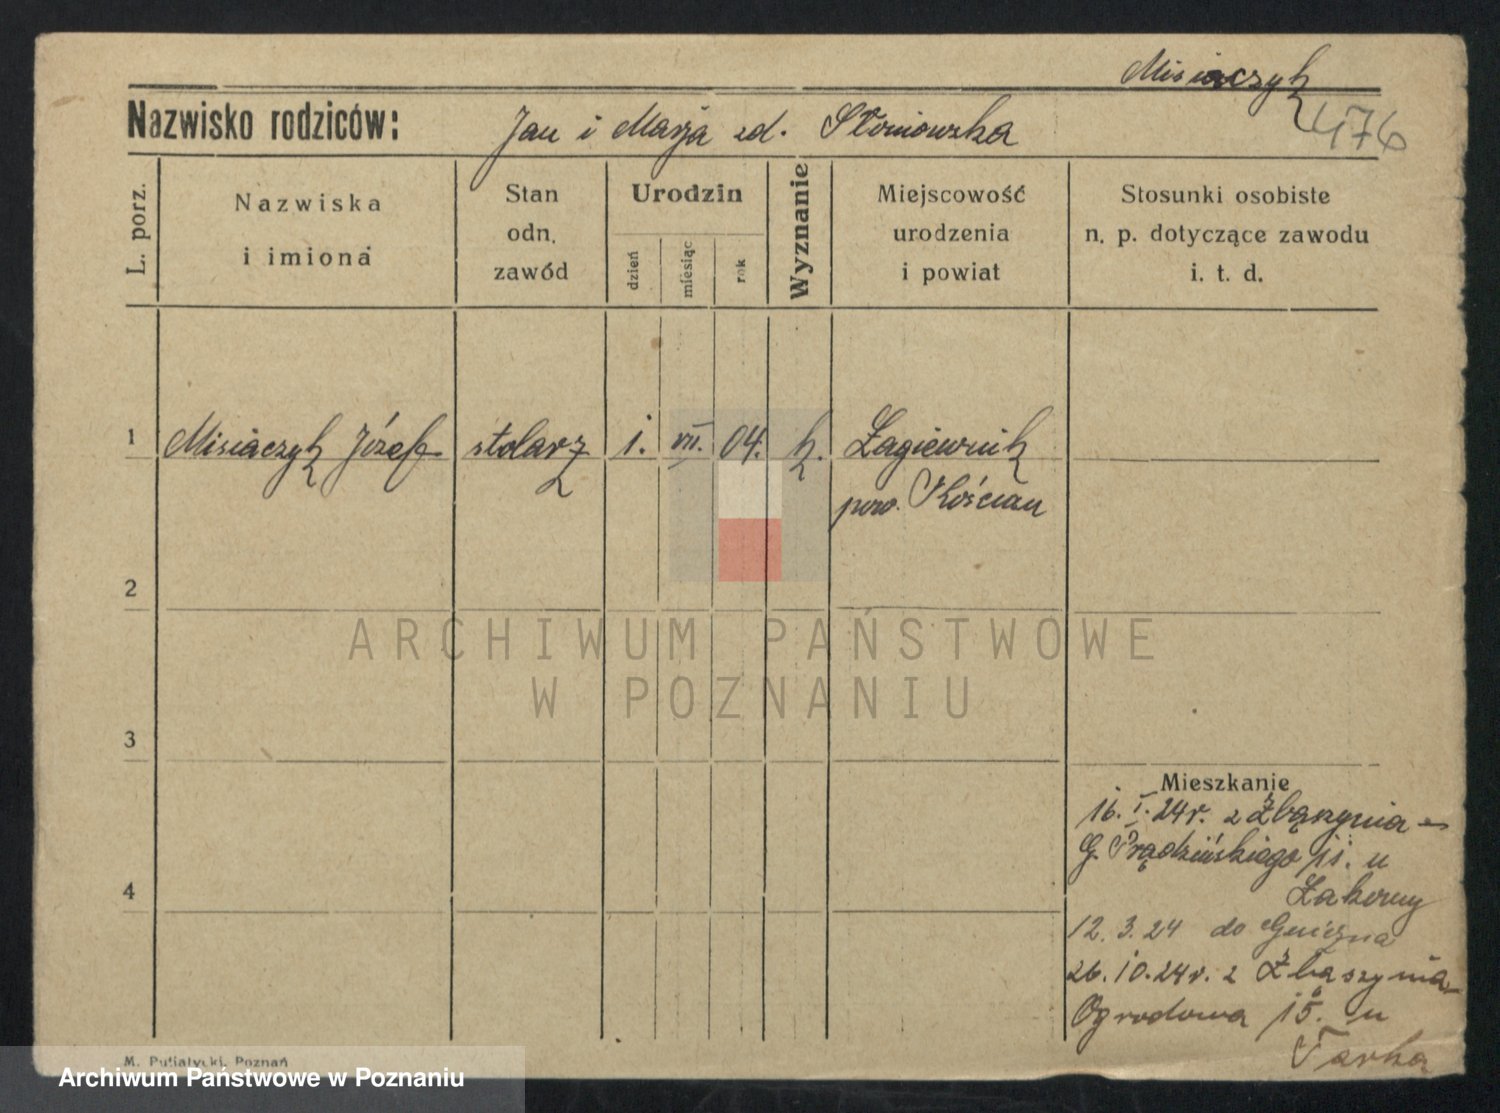 Misiaczyk
476
Nazwisko rodziców: Jan i Marja zd. Słoniowska
L. porz.
Nazwiska i imiona
Stan odn. zawód
Urodzin
dzień
miesiąc
rok
Wyznanie
Miejscowość urodzenia i powiat
Stosunki osobiste n. p. dotyczące zawodu i. t. d.
1 Misiaczyk Józef stolarz 1. VII. 04. k. Łagiewnik
pow. Kościan
2
3
4
Mieszkanie
16. I. 24r. z Zbąszynia
G. Prądzińskiego u
12. 3. 24 do Gniezna
26. 10. 24r. z Zbaszynia
Ogrodowa 15. u
Tarka
M. Putiatycki, Poznań
ARCHIWUM PAŃSTWOWE
W POZNANIU
Archiwum Państwowe w Poznaniu